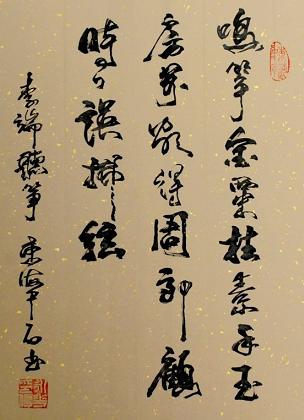 鳴箏金粟柱素手玉
房前欲得周郎顧
時々誤拂絃
李端聽箏 石書